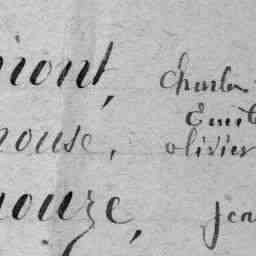 mont, Charles
Emil
nouse, olivier
nouze, Jea